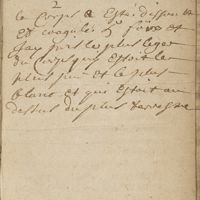 2
le Corps a Esté dissout
Et coagulé 5 fois et
fay par le plus leger
du Corps qui Estoit le
plus pur et le plus
blanc et qui Estoit au
dessus du plus terrestre